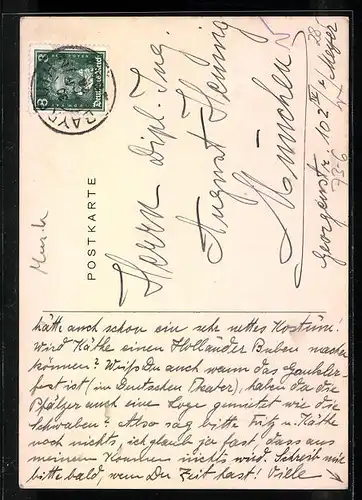 BAYER
8 Deutsches Reich 8
POSTKARTE
Musik
Herrn Dipl. Ing.
August Henning
München
Georgenstr. 102 IV
b/ Meyer
hätte auch schon ein sehr nettes Kostüm!
Wird Käthe einen Holländer Buben machen
können? Weißt Du auch wann das Gauklerfest
ist (im Deutschen Theater), haben da die
Pfälzer auch eine Loge gemietet wie die
Schwaben? Also sag bitte Fritz u. Käthe
noch nichts, ich glaub ja fast, dass aus
meinem Kommen nichts wird. Schreib mir
bitte bald, wenn Du Zeit hast! Viele